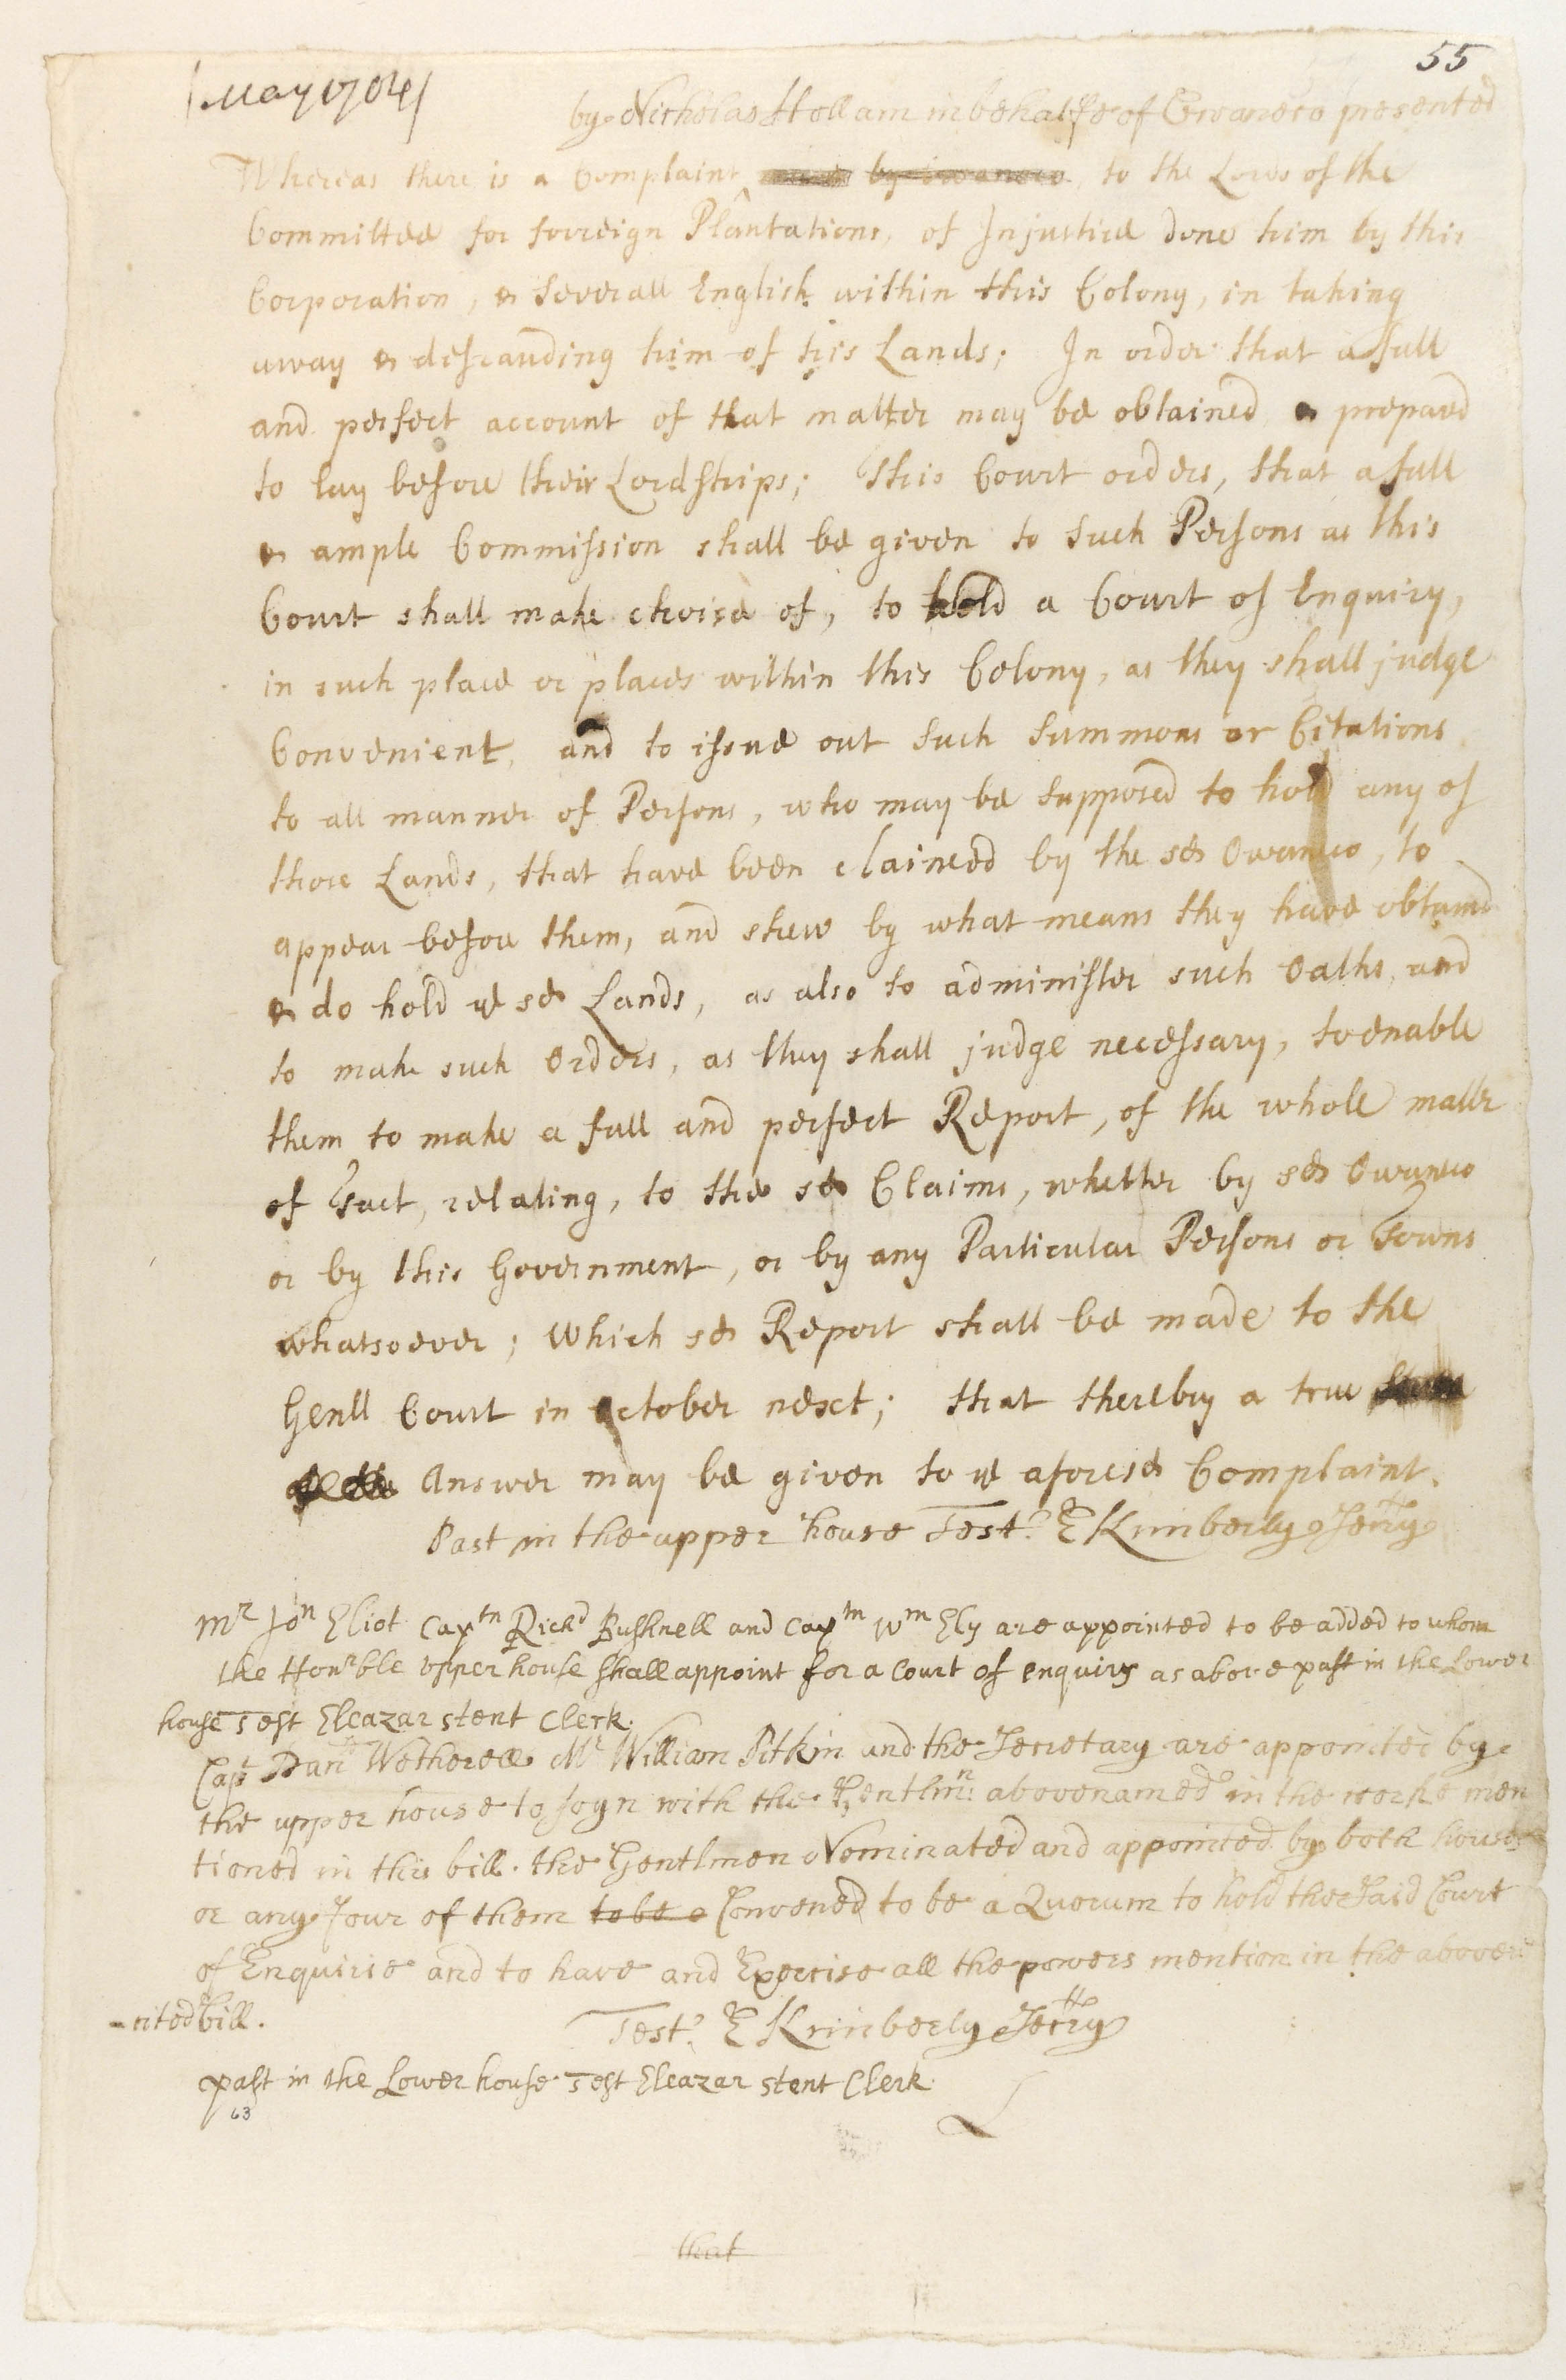 55
May 1704
by Nicholas Hollam in behalfe of Owaneco presented
Whereas there is a Complaint made by Owaneco, to the Lords of the
Committee for forreign Plantations, of Injustice done him by this
Corporation, & severall English within this Colony, in taking
away & defrauding him of his Lands; In order that a full
and perfect account of that matter may be obtained & prepared
to lay before their Lordships; This Court orders, that a full
& ample Commission shall be given to such Persons as this
Court shall make choice of, to hold a Court of Enquiry,
in such place or places within this Colony, as they shall judge
Convenient, and to issue out such Summons or Citations
to all manner of Persons, who may be supposed to hold any of
those Lands, that have been claimed by the sd Owaneco, to
appear before them, and shew by what means they have obtaind
& do hold ye sd Lands, as also to administer such Oaths, and
to make such Orders, as they shall judge necessary, to enable
them to make a full and perfect Report, of the whole matter
of Fact, relating, to the sd Claims, whether by sd Owaneco
or by this Government, or by any Particular Persons or Towns
whatsoever; which sd Report shall be made to the
Genll Court in October next; that thereby a true
Answer may be given to ye aforesd Complaint.
Past in the upper house Test. E Kimberly Secrty
Mr Jon Eliot Captn Richd Bushnell and Captn Wm Ely are appointed to be added to whom
the Honrble upper house shall appoint for a Court of enquiry as above past in the Lower
house Test Eleazar Stent Clerk.
Capt Danl Wetherell Mr William Pitkin and the Secretary are appointed by
the upper house to joyn with the Gentlmn: abovenamed in the worke men
tioned in this bill. the Gentlmen Nominated and appointed by both houses
or any four of them to be a Convened to be a Quorum to hold the said Court
of Enquirie and to have and Exercise all the powers mention in the above
-cited bill.
Test. E Kimberly Secrty
past in the Lower house Test Eleazar Stent Clerk
63
that